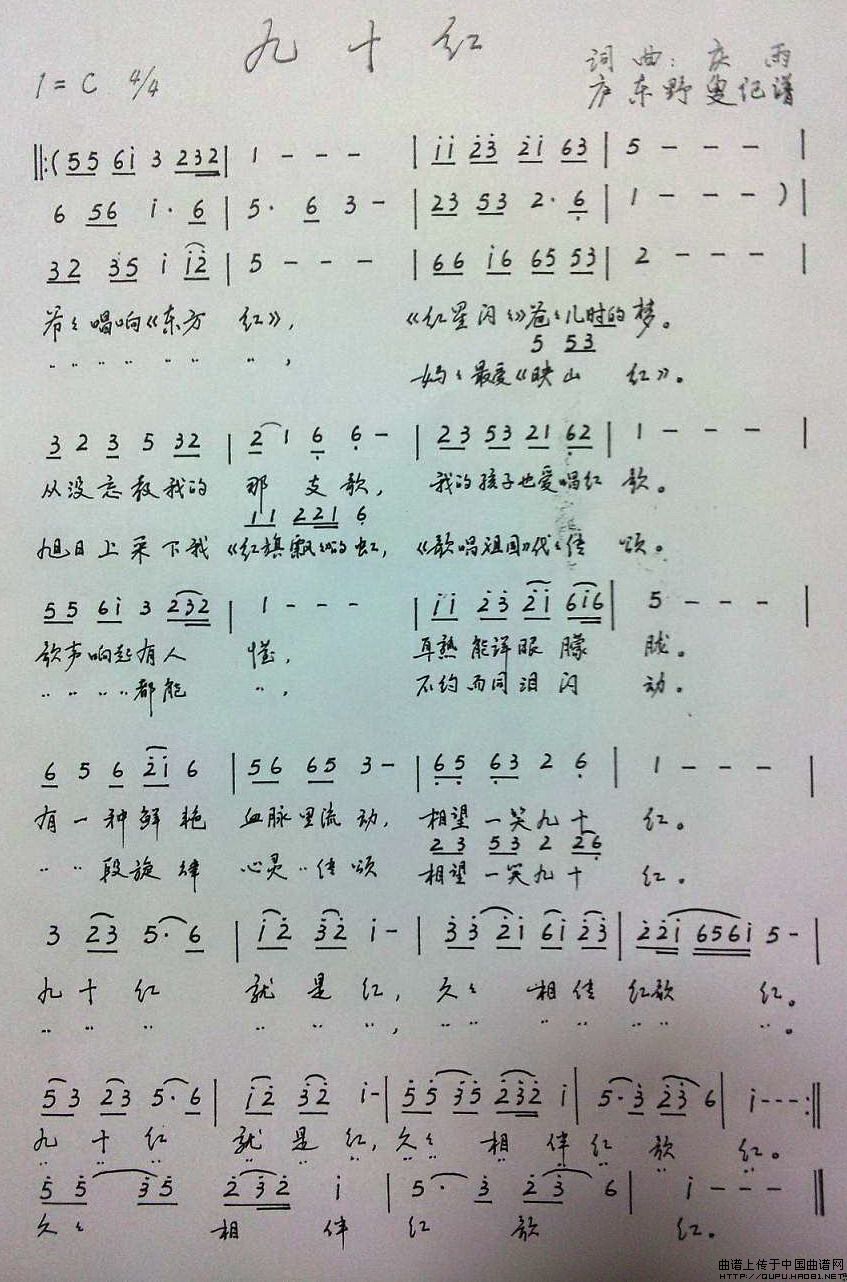 九十红
1=C 4/4
词曲：庆雨
庐东野叟记谱
‖:(55 6i 3 232 | 1 - - - | ii 23 2i 63 | 5 - - - |
6 56 i· 6 | 5· 6 3 - | 23 53 2· 6 | 1 - - - )|
32 35 i i2 | 5 - - - | 66 i6 65 53 | 2 - - - |
爷〃唱响《东方 红》， 《红星闪〃》爸〃儿时的梦。
5 53
〃 〃 〃 〃 〃 〃 〃， 妈〃最爱《映山 红》。
3 2 3 5 32 | 2 1 6 6 - | 23 53 21 62 | 1 - - - |
从没忘教我的 那支歌， 我的孩子也爱唱红 歌。
11 221 6
旭日上采下我《红旗飘〃》的虹， 《歌唱祖国》代〃传 颂。
55 6i 3 232 | 1 - - - | ii 23 2i 6i6 | 5 - - - |
歌声响起有人 懂， 耳熟能详眼朦 胧。
〃 〃 〃 〃都能 〃， 不约而同泪闪 动。
6 5 6 2i 6 | 56 65 3 - | 65 63 2 6 | 1 - - - |
有一种鲜艳 血脉里流动， 相望一笑九十 红。
23 53 2 26
〃 〃段旋律 心灵〃传颂 相望一笑九十 红。
3 23 5· 6 | i2 32 i - | 33 2i 6i 23 | 22i 656i 5 - |
九十红 就是红， 久〃相传红歌 红。
〃 〃 〃 〃 〃 〃， 〃 〃 〃 〃 〃 〃 〃。
53 23 5· 6 | i2 32 i - | 55 35 232 i | 5· 3 23 6 | i - - - :‖
九十红 就是红，久〃相伴红歌 红。
〃 〃 〃 〃 〃 〃 〃 〃 〃 〃 〃 〃 〃
55 35 232 i | 5· 3 23 6 | i - - - ‖
久〃 相伴 红 歌 红。
曲谱上传于中国曲谱网
HTTP://QUPU.HAO81.NET